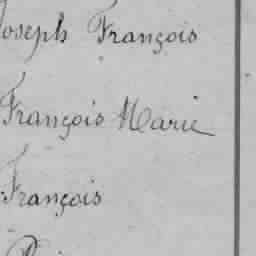 Joseph François
François Marie
François